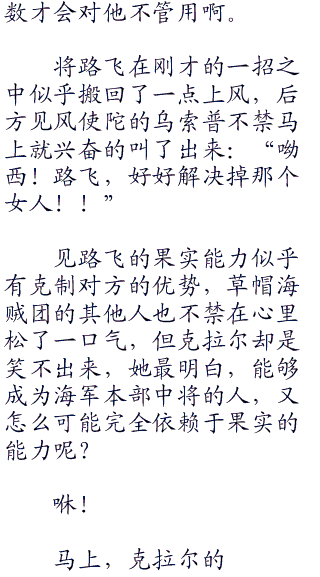 数才会对他不管用啊。
将路飞在刚才的一招之
中似乎搬回了一点上风，后
方见风使陀的乌索普不禁马
上就兴奋的叫了出来：“呦
西！路飞，好好解决掉那个
女人！！”
见路飞的果实能力似乎
有克制对方的优势，草帽海
贼团的其他人也不禁在心里
松了一口气，但克拉尔却是
笑不出来，她最明白，能够
成为海军本部中将的人，又
怎么可能完全依赖于果实的
能力呢？
咻！
马上，克拉尔的